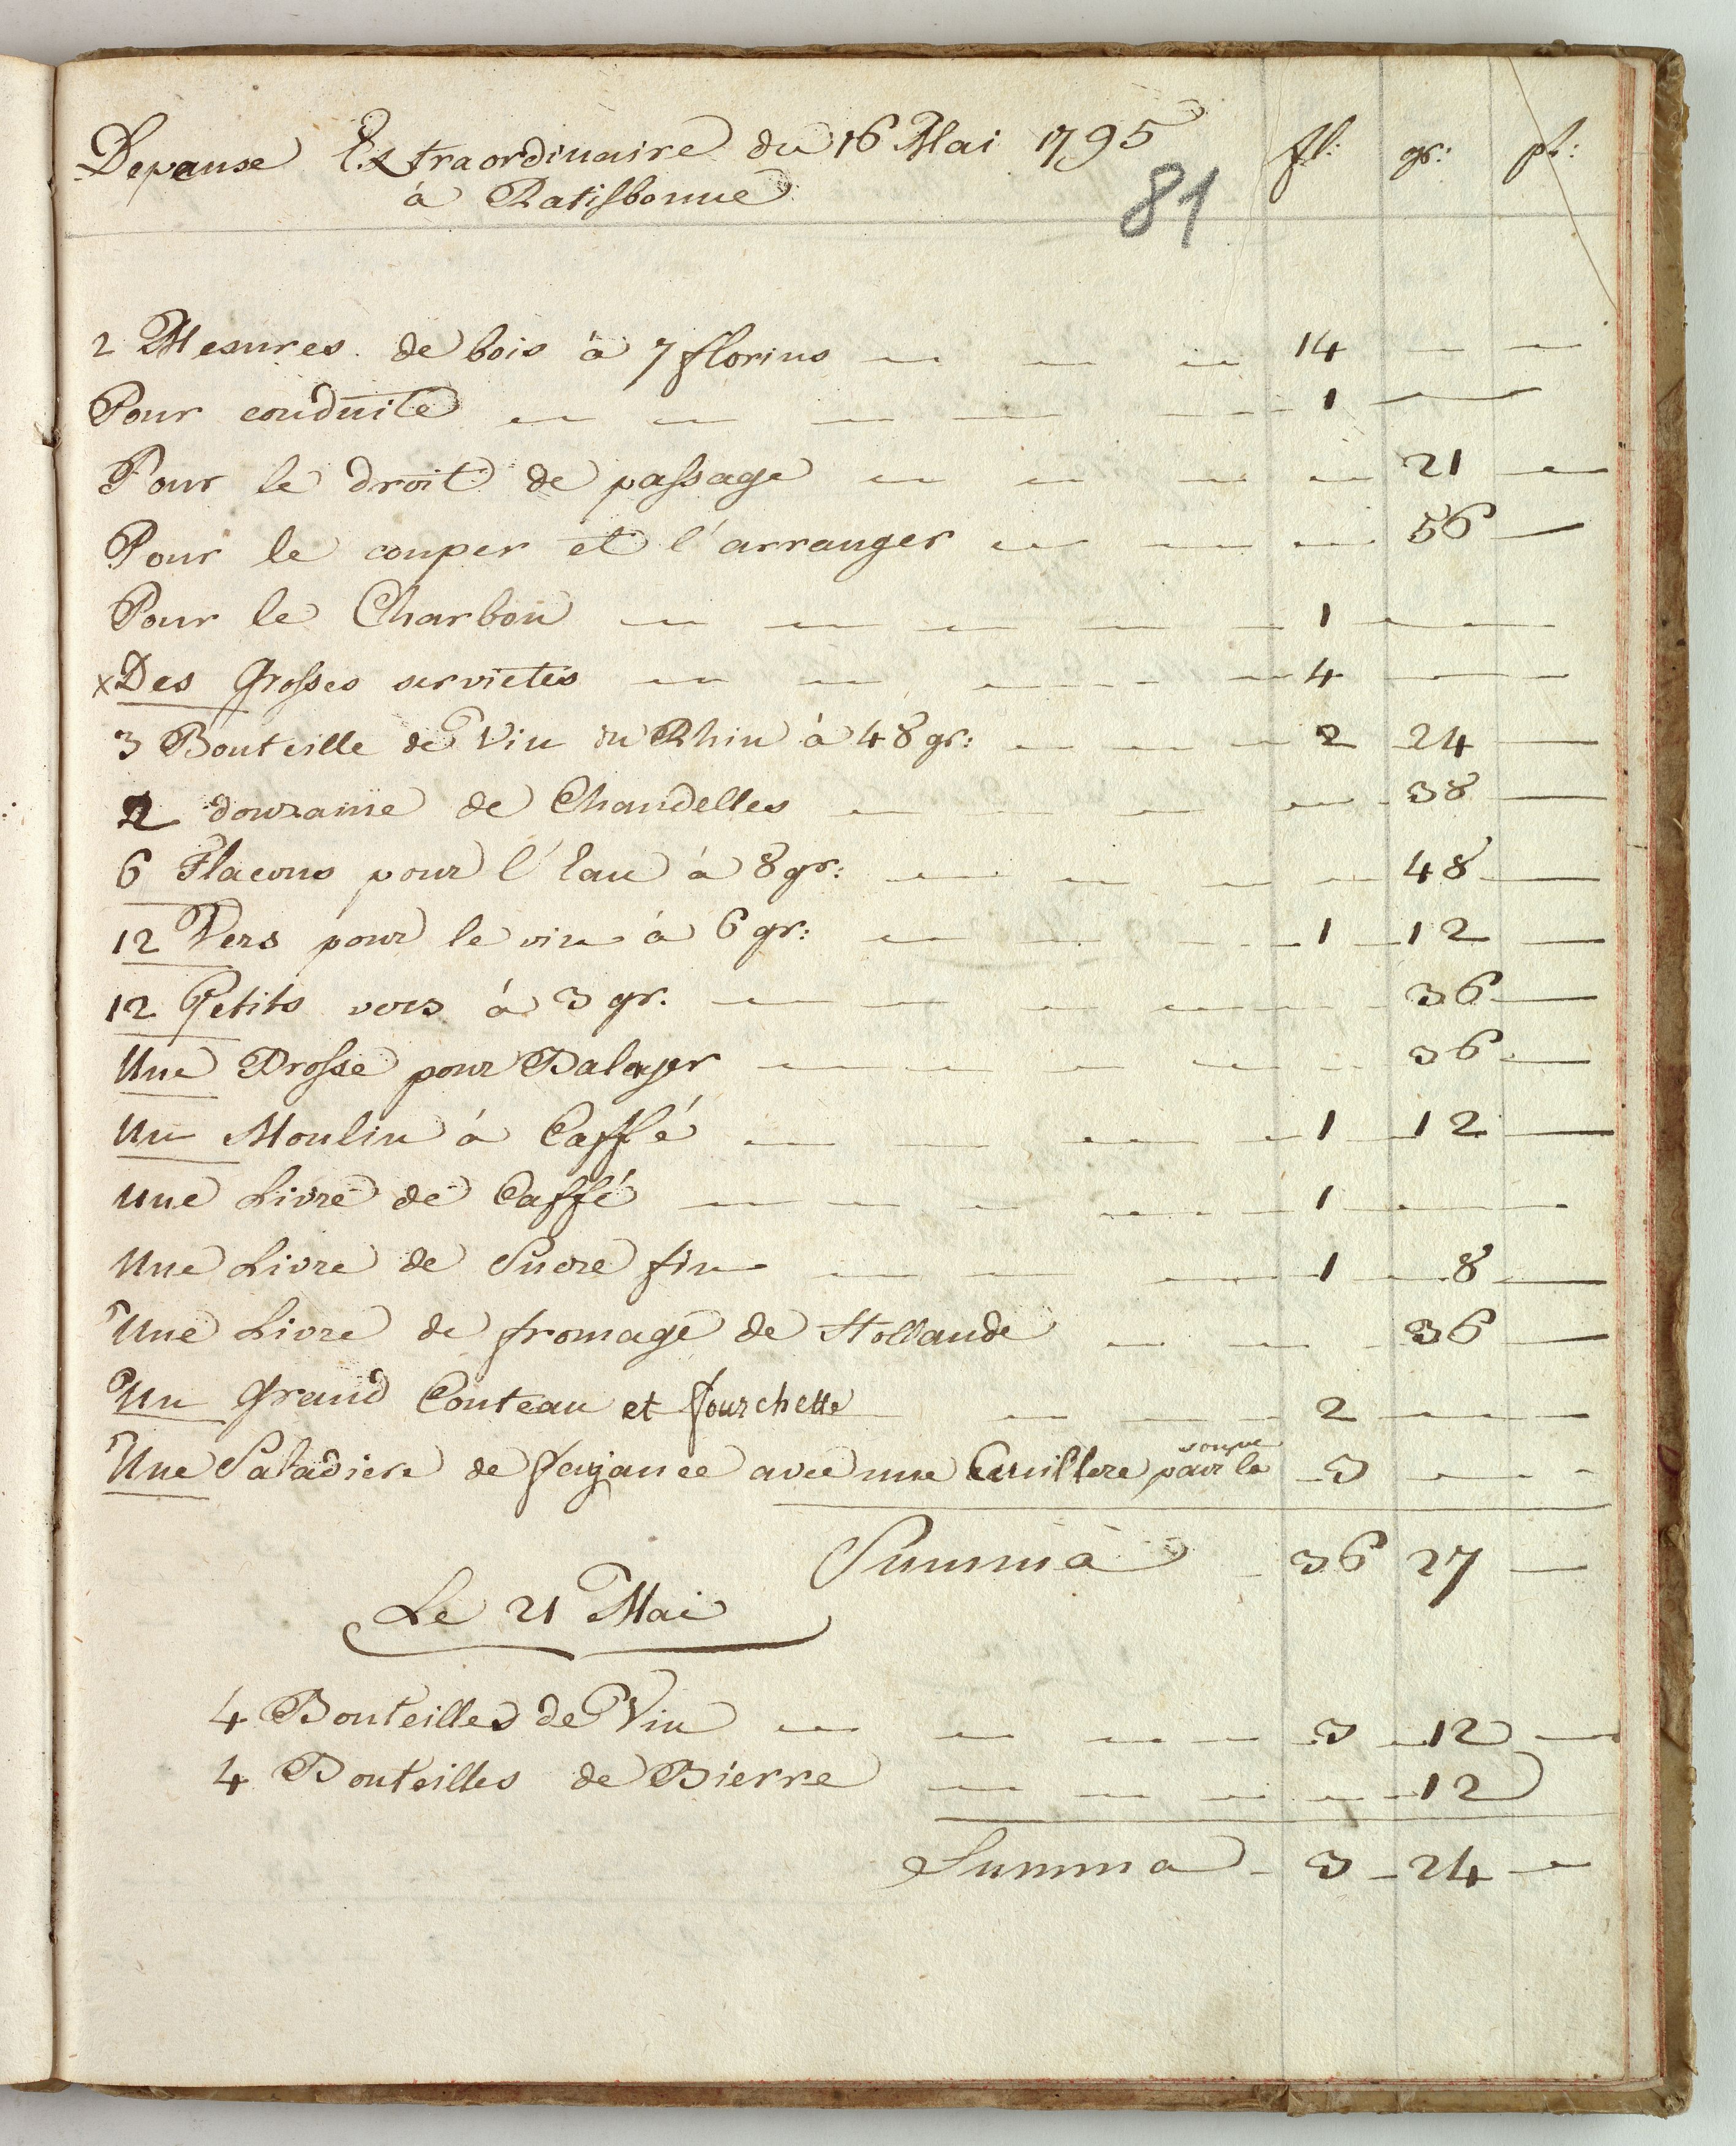 Depeuse Extraordinaire du 16 Mai 1795 fl: gr: pf:
à Ratisbonne
81
2 Mesures de bois à 7 florins 14
Pour conduite 1
Pour le droit de passage 21
Pour le couper et l'arranger 56
Pour le Charbon 1
x Des Grosses serviettes 4
3 Bouteille de Vin du Rhin à 48 gr: 2 24
2 douzaine de Chandelles 38
6 Flacons pour l'Eau à 8 gr: 48
12 Vers pour le vin à 6 gr: 1 12
12 Petits vers à 3 gr. 36
Une Brosse pour Balayer 36
Un Moulin à Caffé 1 12
Une Livre de Caffé 1
Une Livre de Sucre fin 1 8
Une Livre de fromage de Hollande 36
Un Grand Couteau et fourchette 2
Une Saladiere de fayance avec une Cuillere pour la soupe 3
Summa 36 27
Le 21 Mai
4 Bouteilles de Vin 3 12
4 Bouteilles de Bierre 12
Summa 3 24